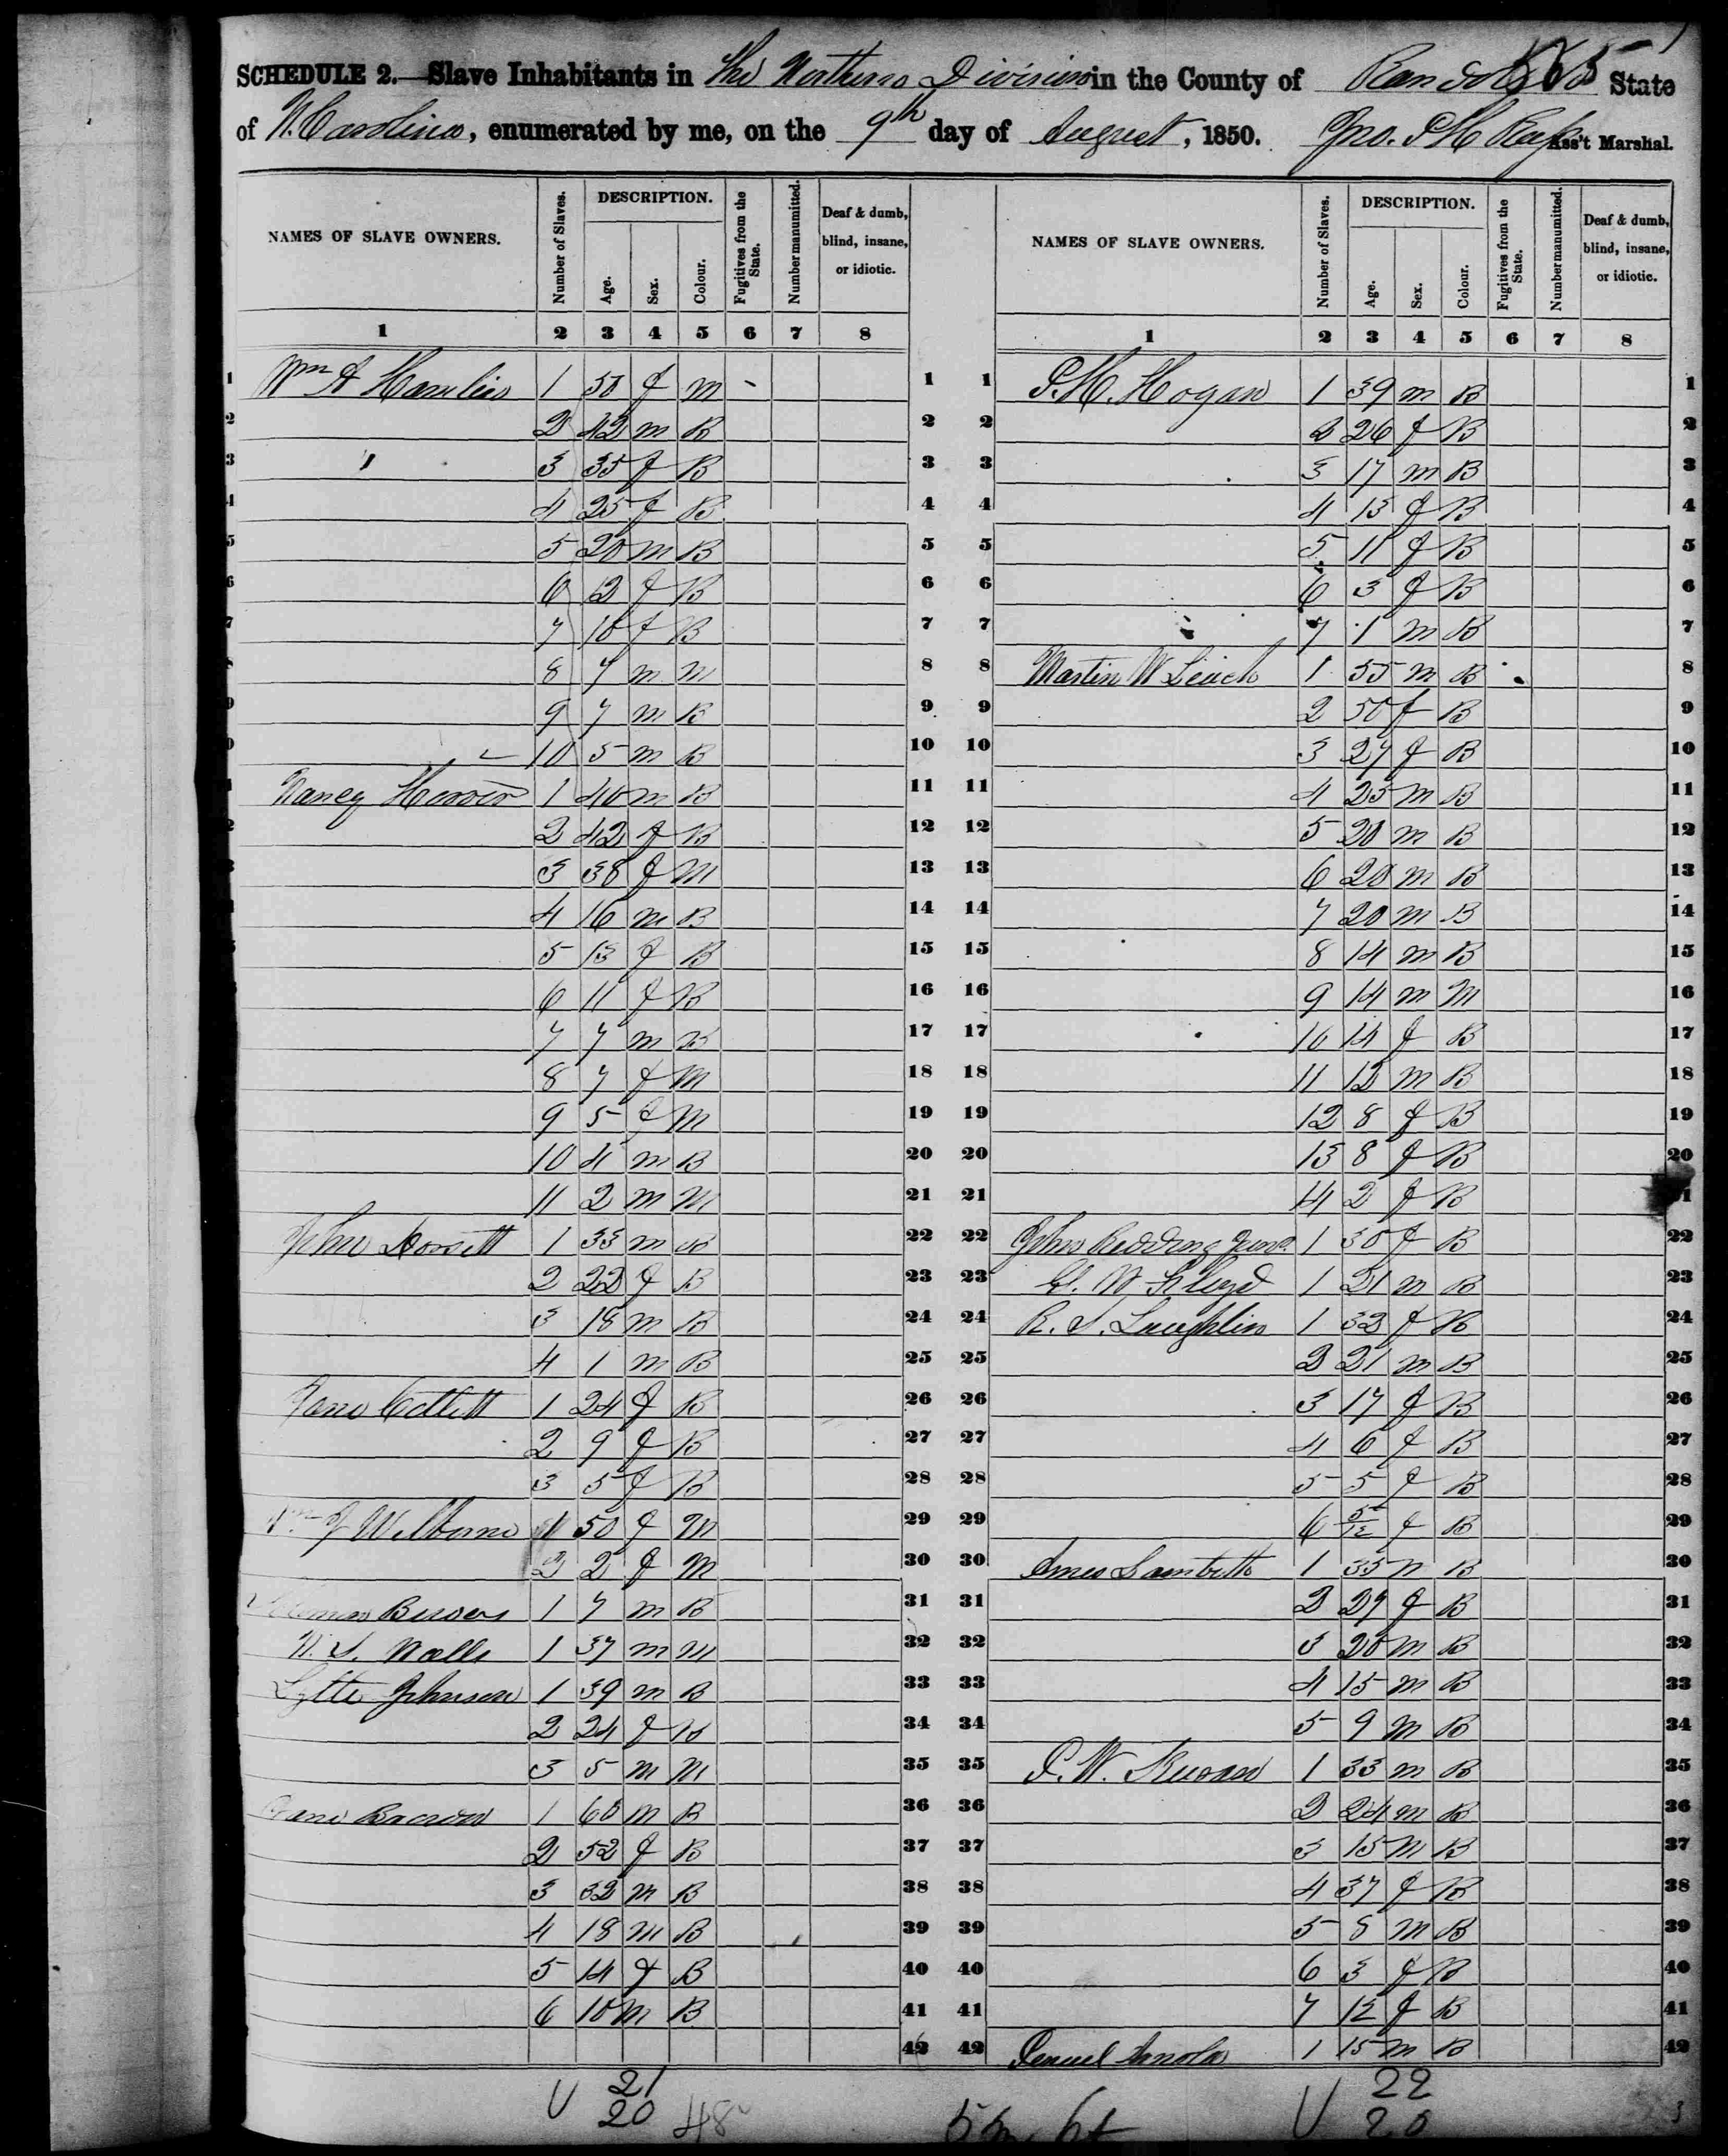 SCHEDULE 2.—Slave Inhabitants in the Northern Division in the County of Randolph State
of N. Carolina, enumerated by me, on the 9th day of August, 1850. Jno. Ass't Marshal.
NAMES OF SLAVE OWNERS. Number of Slaves. DESCRIPTION. Age. Sex. Colour. Fugitives from the State. Number manumitted. Deaf & dumb, blind, insane, or idiotic. NAMES OF SLAVE OWNERS. Number of Slaves. DESCRIPTION. Age. Sex. Colour. Fugitives from the State. Number manumitted. Deaf & dumb, blind, insane, or idiotic.
1 2 3 4 5 6 7 8 1 2 3 4 5 6 7 8
1 Wm A Hamlin 1 50 f m 1 1 Hogan 1 39 m B 1
2 2 42 m B 2 2 2 26 f B 2
3 3 35 f B 3 3 3 17 m B 3
4 4 25 f B 4 4 4 13 f B 4
5 5 20 m B 5 5 5 11 f B 5
6 6 12 f B 6 6 6 3 f B 6
7 7 10 f B 7 7 7 1 m B 7
8 8 7 m m 8 8 Martin W Leach 1 55 m B 8
9 9 7 m B 9 9 2 50 f B 9
10 5 m B 10 10 3 27 f B 10
Nancy Hoover 1 40 m B 11 11 4 25 m B 11
2 42 f B 12 12 5 20 m B 12
3 38 f M 13 13 6 20 m B 13
4 16 m B 14 14 7 20 m B 14
5 13 f B 15 15 8 14 m B 15
6 11 f B 16 16 9 14 m M 16
7 7 m B 17 17 10 14 f B 17
8 7 f M 18 18 11 12 m B 18
9 5 f M 19 19 12 8 f B 19
10 4 m B 20 20 13 8 f B 20
11 2 m M 21 21 14 2 f B
John Dorsett 1 33 m B 22 22 John Redding Junr. 1 30 f B 22
2 22 f B 23 23 W 1 21 m B 23
3 18 m B 24 24 R. S. Laughlin 1 32 f B 24
4 1 m B 25 25 2 21 m B 25
Jane 1 24 f B 26 26 3 17 f B 26
2 9 f B 27 27 4 6 f B 27
3 5 f B 28 28 5 5 f B 28
Welborne 1 50 f M 29 29 6 5/12 f B 29
2 2 f M 30 30 1 35 m B 30
1 7 m B 31 31 2 29 f B 31
1 37 m M 32 32 3 20 m B 32
Johnson 1 39 m B 33 33 4 15 m B 33
2 24 f B 34 34 5 9 m B 34
3 5 m M 35 35 1 33 m B 35
1 60 m B 36 36 2 24 m B 36
2 52 f B 37 37 3 15 m B 37
3 32 m B 38 38 4 37 f B 38
4 18 m B 39 39 5 m B 39
5 14 f B 40 40 6 3 f B 40
6 10 m B 41 41 7 12 f B 41
42 42 1 15 m B 42
21 22
20 48 20